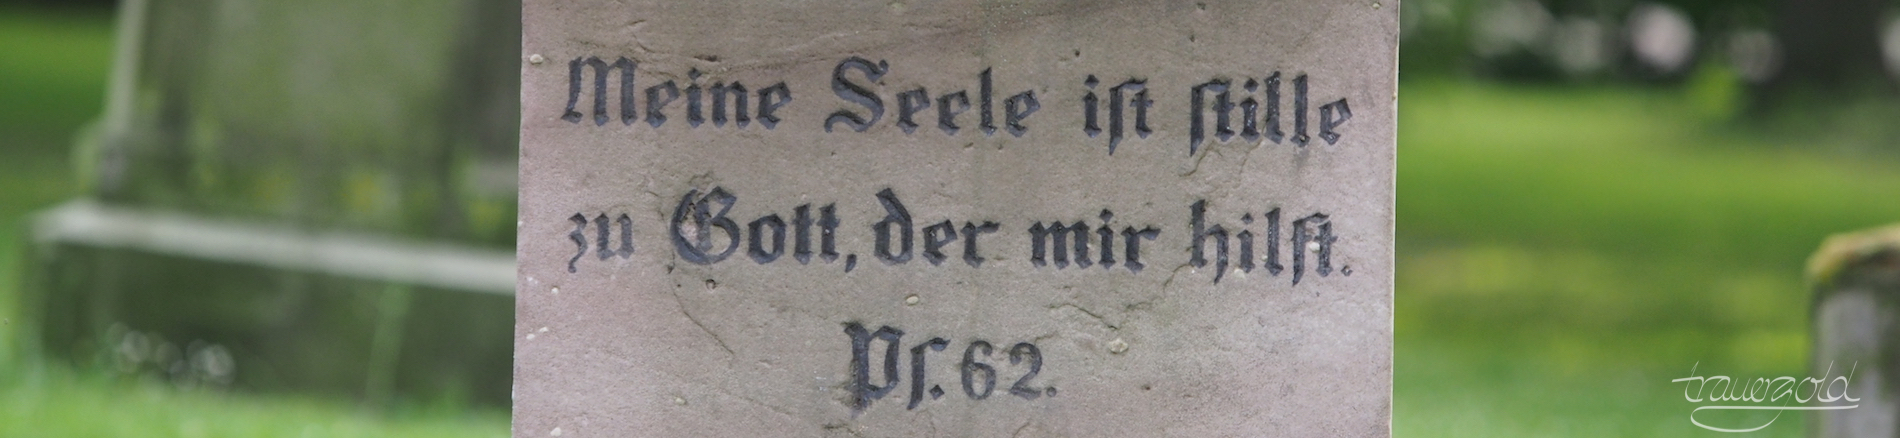 Meine Seele iſt ſtille
zu Gott, der mir hilft.
Pſ. 62.
trauergold